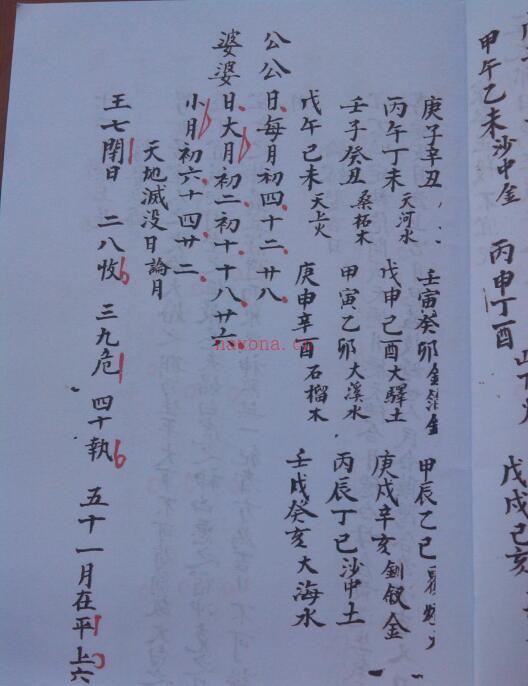 甲午乙未沙中金 丙申丁酉 戊戌己亥
庚子辛丑 壬寅癸卯金箔金 甲辰乙巳
丙午丁未天河水 戊申己酉大驛土 庚戌辛亥釧釵金
壬子癸丑桑柘木 甲寅乙卯大溪水 丙辰丁巳沙中土
戊午己未天上火 庚申辛酉石榴木 壬戌癸亥大海水
公公日每月初四十二廿八
婆婆日大月初二初十十八廿
小月初六十四廿二
天地滅没日論月
王七閉日 二八收 三九危 四十執 五十一月在平上六
nayona.cn